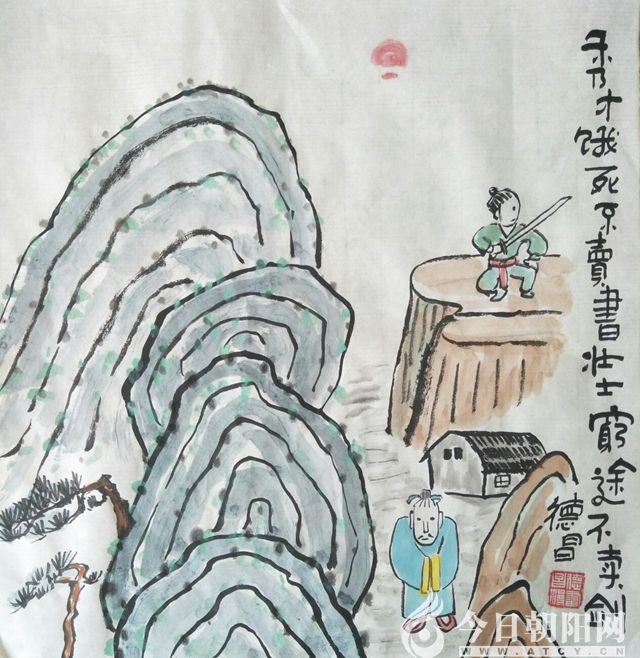 秀才饿死不賣書壮士窮途不卖剑
德昌
今日朝阳网
WWW.ATCY.CN